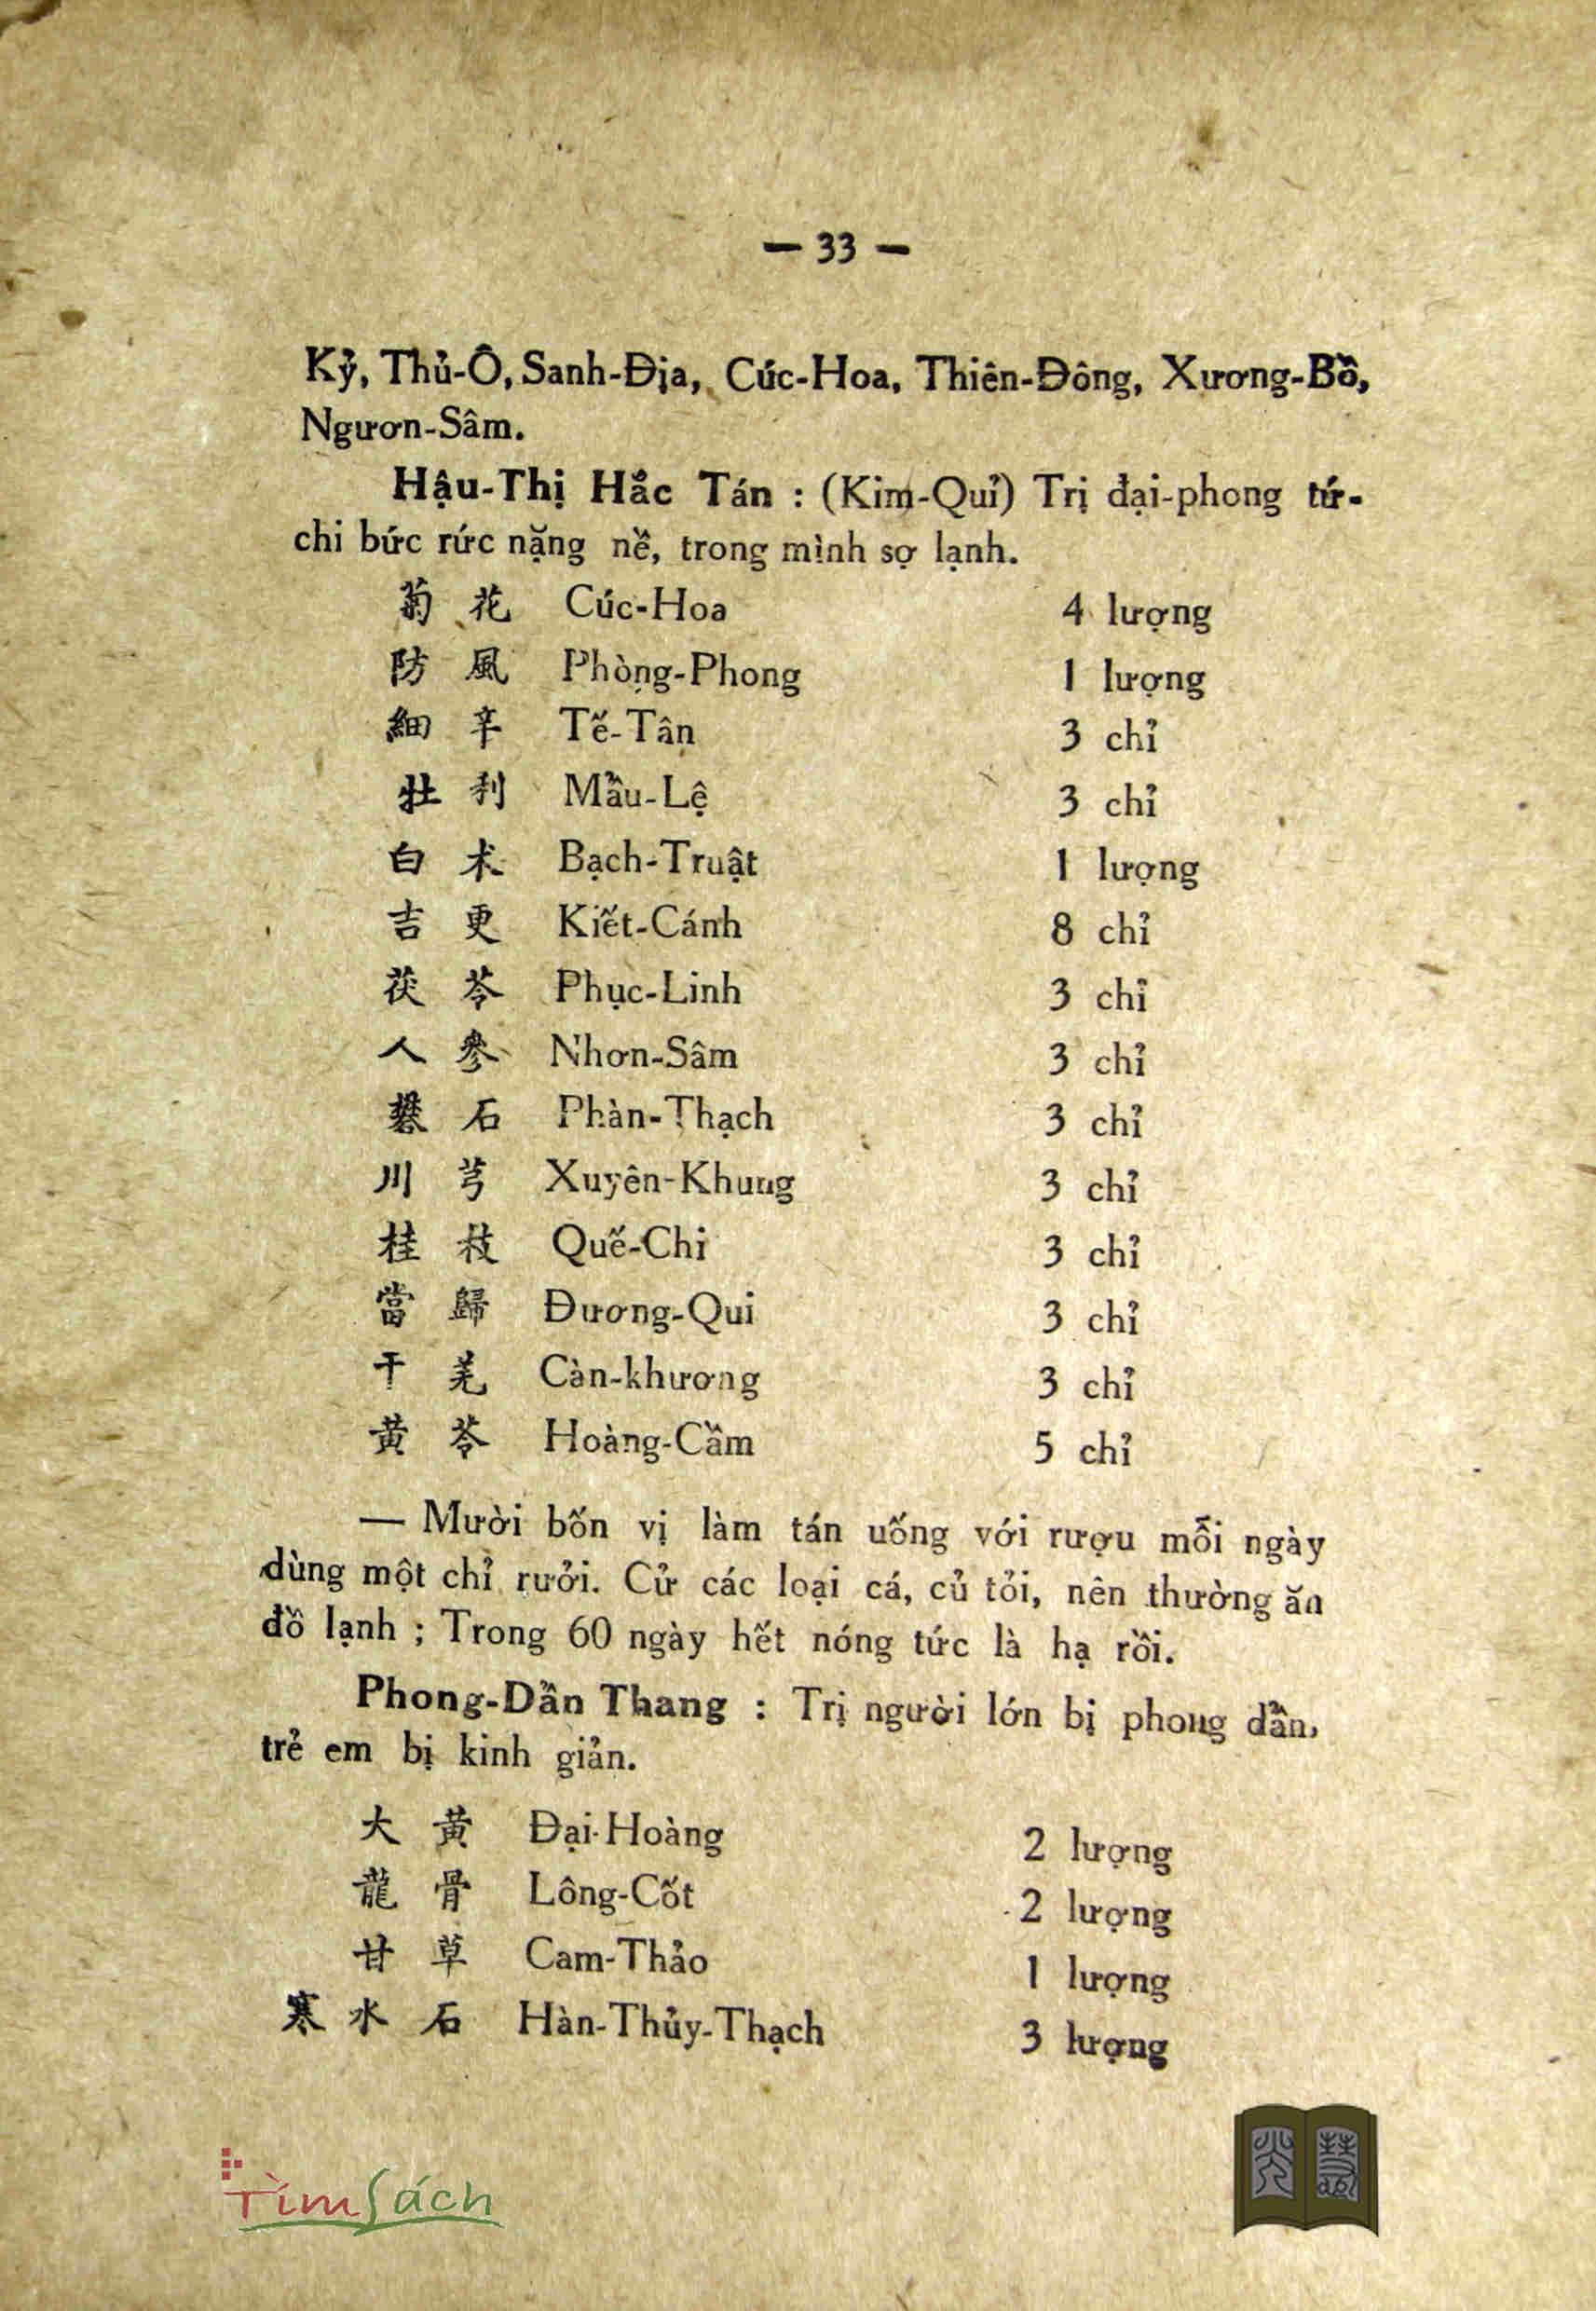 — 33 —
Kỷ, Thủ-Ô, Sanh-Địa, Cúc-Hoa, Thiên-Đông, Xương-Bồ,
Ngươn-Sâm.
Hậu-Thị Hắc Tán : (Kim-Quỉ) Trị đại-phong tứ-
chi bức rức nặng nề, trong mình sợ lạnh.
菊 花 Cúc-Hoa 4 lượng
防 風 Phòng-Phong 1 lượng
細 辛 Tế-Tân 3 chỉ
牡 利 Mẫu-Lệ 3 chỉ
白 术 Bạch-Truật 1 lượng
吉 更 Kiết-Cánh 8 chỉ
茯 苓 Phục-Linh 3 chỉ
人 參 Nhơn-Sâm 3 chỉ
礬 石 Phàn-Thạch 3 chỉ
川 芎 Xuyên-Khung 3 chỉ
桂 枝 Quế-Chi 3 chỉ
當 歸 Đương-Qui 3 chỉ
干 羌 Càn-khương 3 chỉ
黄 苓 Hoàng-Cầm 5 chỉ
— Mười bốn vị làm tán uống với rượu mỗi ngày
dùng một chỉ rưởi. Cử các loại cá, củ tỏi, nên thường ăn
đồ lạnh ; Trong 60 ngày hết nóng tức là hạ rồi.
Phong-Dẫn Thang : Trị người lớn bị phong dẫn,
trẻ em bị kinh giản.
大 黄 Đại-Hoàng 2 lượng
龍 骨 Lông-Cốt 2 lượng
甘 草 Cam-Thảo 1 lượng
寒 水 石 Hàn-Thủy-Thạch 3 lượng
TìmSách